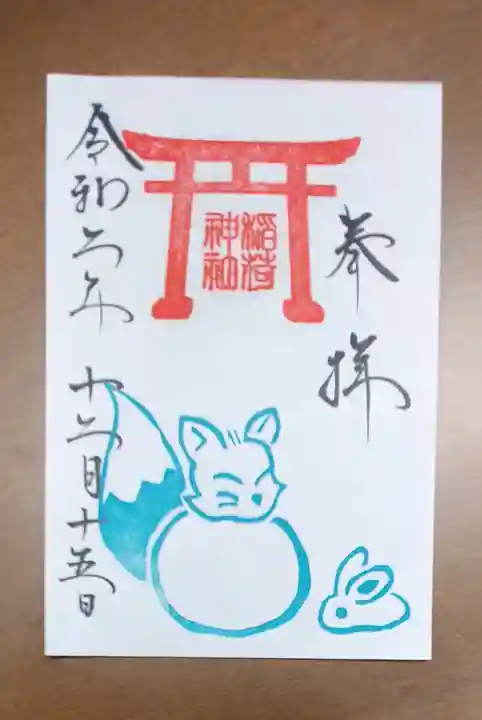 奉拝
稲荷
神社
令和二年 十二月十五日